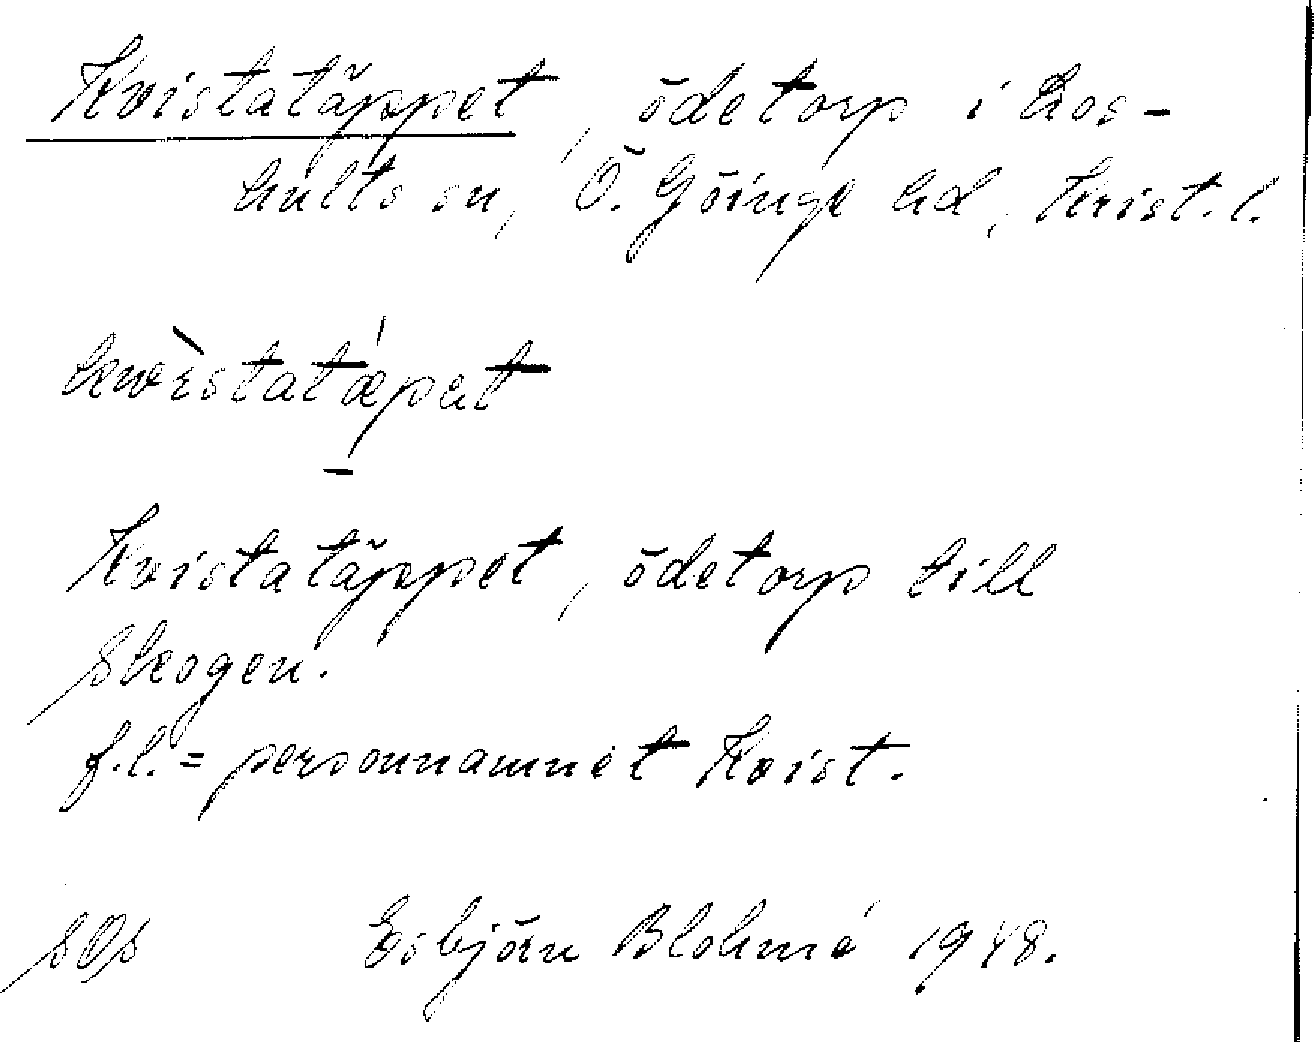 Kvistatäppet, ödetorp i Los-
hults sn, Ö. Göinge hd, Krist. l.
kwìstatǽpat
Kvistatäppet, ödetorp till
Skogen.
f.l. = personnamnet Kvist.
Esbjörn Blohmé 1948.